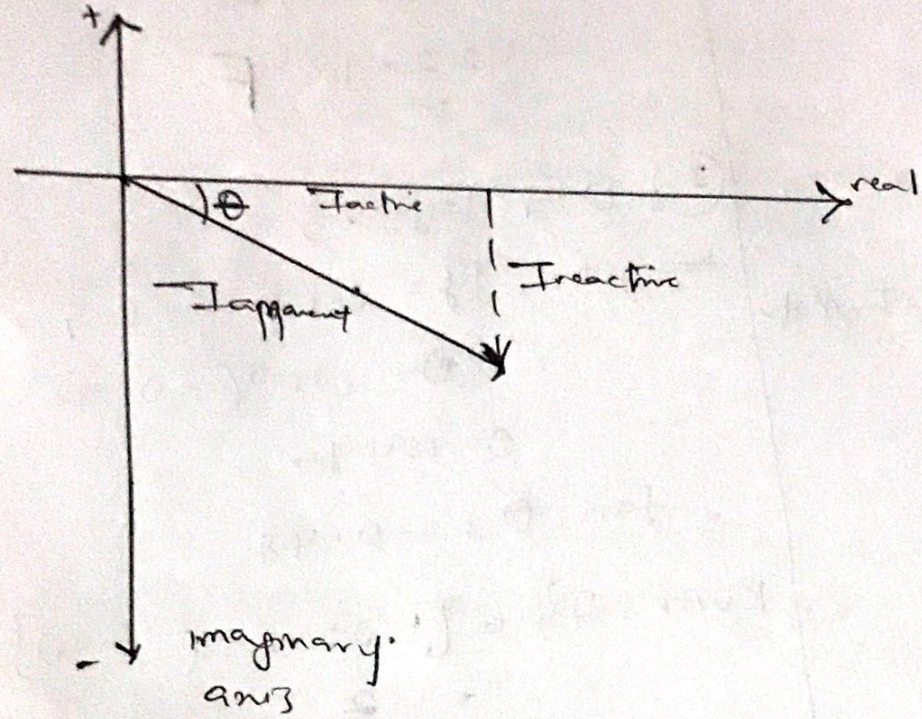 +
real
θ
Iactive
Ireactive
Iapparent
-
imaginary.
axis